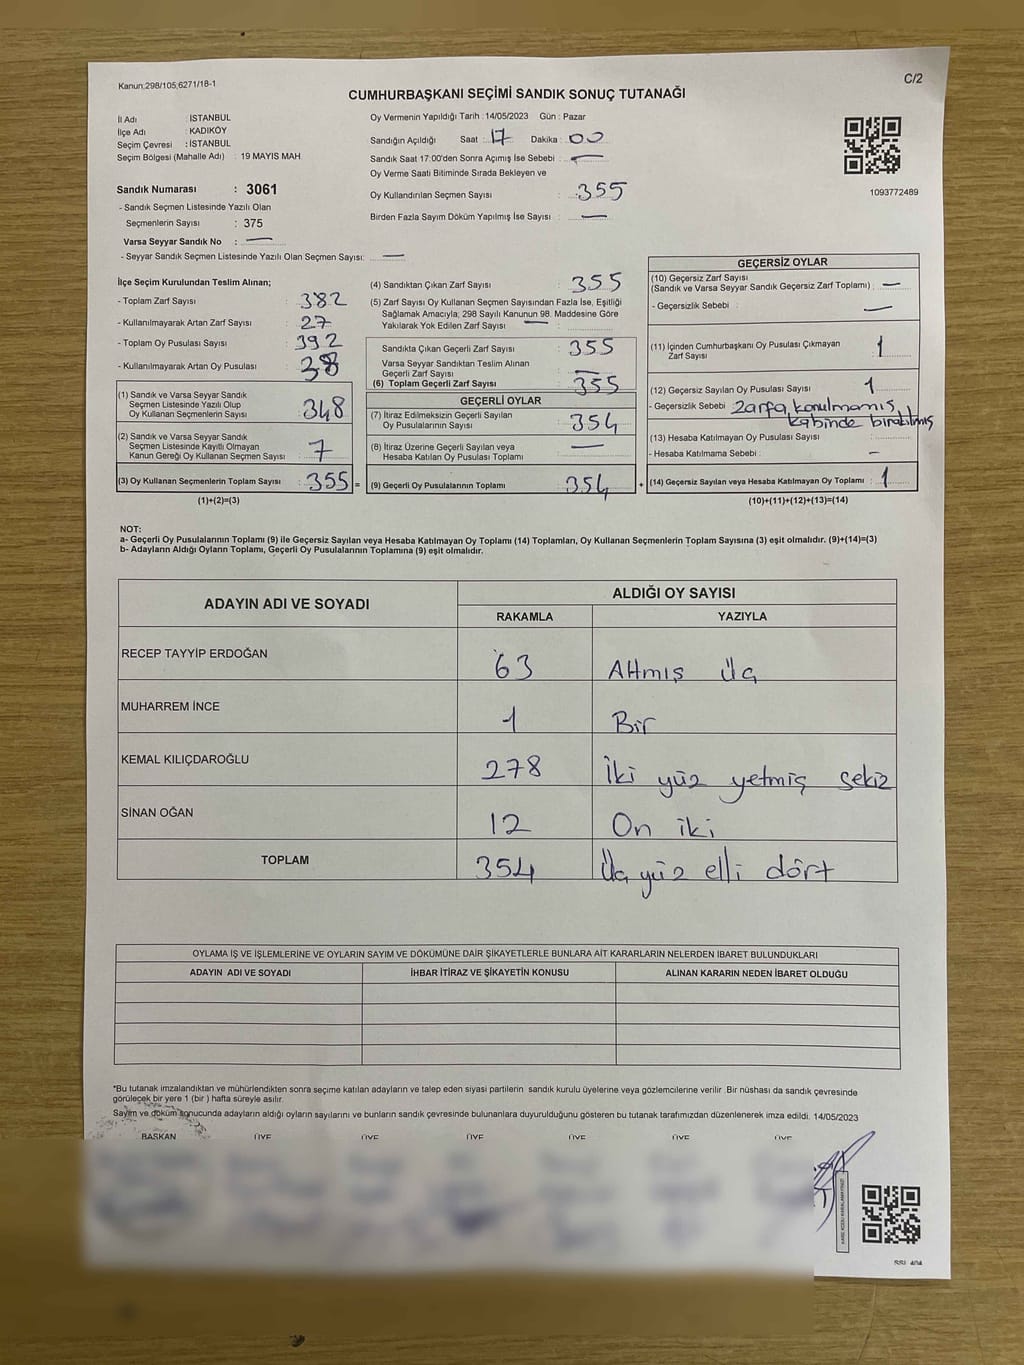 Kanun:298/105,6271/18-1
C/2
CUMHURBAŞKANI SEÇİMİ SANDIK SONUÇ TUTANAĞI
İl Adı : İSTANBUL
İlçe Adı : KADIKÖY
Seçim Çevresi : İSTANBUL
Seçim Bölgesi (Mahalle Adı) : 19 MAYIS MAH
Sandık Numarası : 3061
- Sandık Seçmen Listesinde Yazılı Olan
Seçmenlerin Sayısı : 375
Varsa Seyyar Sandık No : —
- Seyyar Sandık Seçmen Listesinde Yazılı Olan Seçmen Sayısı: —
Oy Vermenin Yapıldığı Tarih : 14/05/2023 Gün : Pazar
Sandığın Açıldığı Saat : 17 Dakika : 00
Sandık Saat 17:00'den Sonra Açımış İse Sebebi : —
Oy Verme Saati Bitiminde Sırada Bekleyen ve
Oy Kullandırılan Seçmen Sayısı : 355
Birden Fazla Sayım Döküm Yapılmış İse Sayısı : —
1093772489
İlçe Seçim Kurulundan Teslim Alınan;
- Toplam Zarf Sayısı : 382
- Kullanılmayarak Artan Zarf Sayısı : 27
- Toplam Oy Pusulası Sayısı : 392
- Kullanılmayarak Artan Oy Pusulası : 38
(1) Sandık ve Varsa Seyyar Sandık
Seçmen Listesinde Yazılı Olup
Oy Kullanan Seçmenlerin Sayısı : 348
(2) Sandık ve Varsa Seyyar Sandık
Seçmen Listesinde Kayıtlı Olmayan
Kanun Gereği Oy Kullanan Seçmen Sayısı : 7
(3) Oy Kullanan Seçmenlerin Toplam Sayısı : 355 =
(1)+(2)=(3)
(4) Sandıktan Çıkan Zarf Sayısı : 355
(5) Zarf Sayısı Oy Kullanan Seçmen Sayısından Fazla İse, Eşitliği
Sağlamak Amacıyla; 298 Sayılı Kanunun 98. Maddesine Göre
Yakılarak Yok Edilen Zarf Sayısı : —
Sandıkta Çıkan Geçerli Zarf Sayısı : 355
Varsa Seyyar Sandıktan Teslim Alınan
Geçerli Zarf Sayısı : —
(6) Toplam Geçerli Zarf Sayısı : 355
GEÇERLİ OYLAR
(7) İtiraz Edilmeksizin Geçerli Sayılan
Oy Pusulalarının Sayısı : 354
(8) İtiraz Üzerine Geçerli Sayılan veya
Hesaba Katılan Oy Pusulası Toplamı : —
(9) Geçerli Oy Pusulalarının Toplamı : 354 +
GEÇERSİZ OYLAR
(10) Geçersiz Zarf Sayısı
(Sandık ve Varsa Seyyar Sandık Geçersiz Zarf Toplamı) : —
- Geçersizlik Sebebi : —
(11) İçinden Cumhurbaşkanı Oy Pusulası Çıkmayan
Zarf Sayısı : 1
(12) Geçersiz Sayılan Oy Pusulası Sayısı : 1
- Geçersizlik Sebebi : Zarfa konulmamış,
kabinde bırakılmış
(13) Hesaba Katılmayan Oy Pusulası Sayısı :
- Hesaba Katılmama Sebebi : —
(14) Geçersiz Sayılan veya Hesaba Katılmayan Oy Toplamı : 1
(10)+(11)+(12)+(13)=(14)
NOT:
a- Geçerli Oy Pusulalarının Toplamı (9) ile Geçersiz Sayılan veya Hesaba Katılmayan Oy Toplamı (14) Toplamları, Oy Kullanan Seçmenlerin Toplam Sayısına (3) eşit olmalıdır. (9)+(14)=(3)
b- Adayların Aldığı Oyların Toplamı, Geçerli Oy Pusulalarının Toplamına (9) eşit olmalıdır.
ADAYIN ADI VE SOYADI
ALDIĞI OY SAYISI
RAKAMLA YAZIYLA
RECEP TAYYİP ERDOĞAN 63 Altmış üç
MUHARREM İNCE 1 Bir
KEMAL KILIÇDAROĞLU 278 İki yüz yetmiş sekiz
SİNAN OĞAN 12 On iki
TOPLAM 354 Üç yüz elli dört
OYLAMA İŞ VE İŞLEMLERİNE VE OYLARIN SAYIM VE DÖKÜMÜNE DAİR ŞİKAYETLERLE BUNLARA AİT KARARLARIN NELERDEN İBARET BULUNDUKLARI
ADAYIN ADI VE SOYADI İHBAR İTİRAZ VE ŞİKAYETİN KONUSU ALINAN KARARIN NEDEN İBARET OLDUĞU
*Bu tutanak imzalandıktan ve mühürlendikten sonra seçime katılan adayların ve talep eden siyasi partilerin sandık kurulu üyelerine veya gözlemcilerine verilir .Bir nüshası da sandık çevresinde
görülecek bir yere 1 (bir ) hafta süreyle asılır.
Sayım ve döküm sonucunda adayların aldığı oyların sayılarını ve bunların sandık çevresinde bulunanlara duyurulduğunu gösteren bu tutanak tarafımızdan düzenlenerek imza edildi. 14/05/2023
BAŞKAN ÜYE ÜYE ÜYE ÜYE ÜYE ÜYE